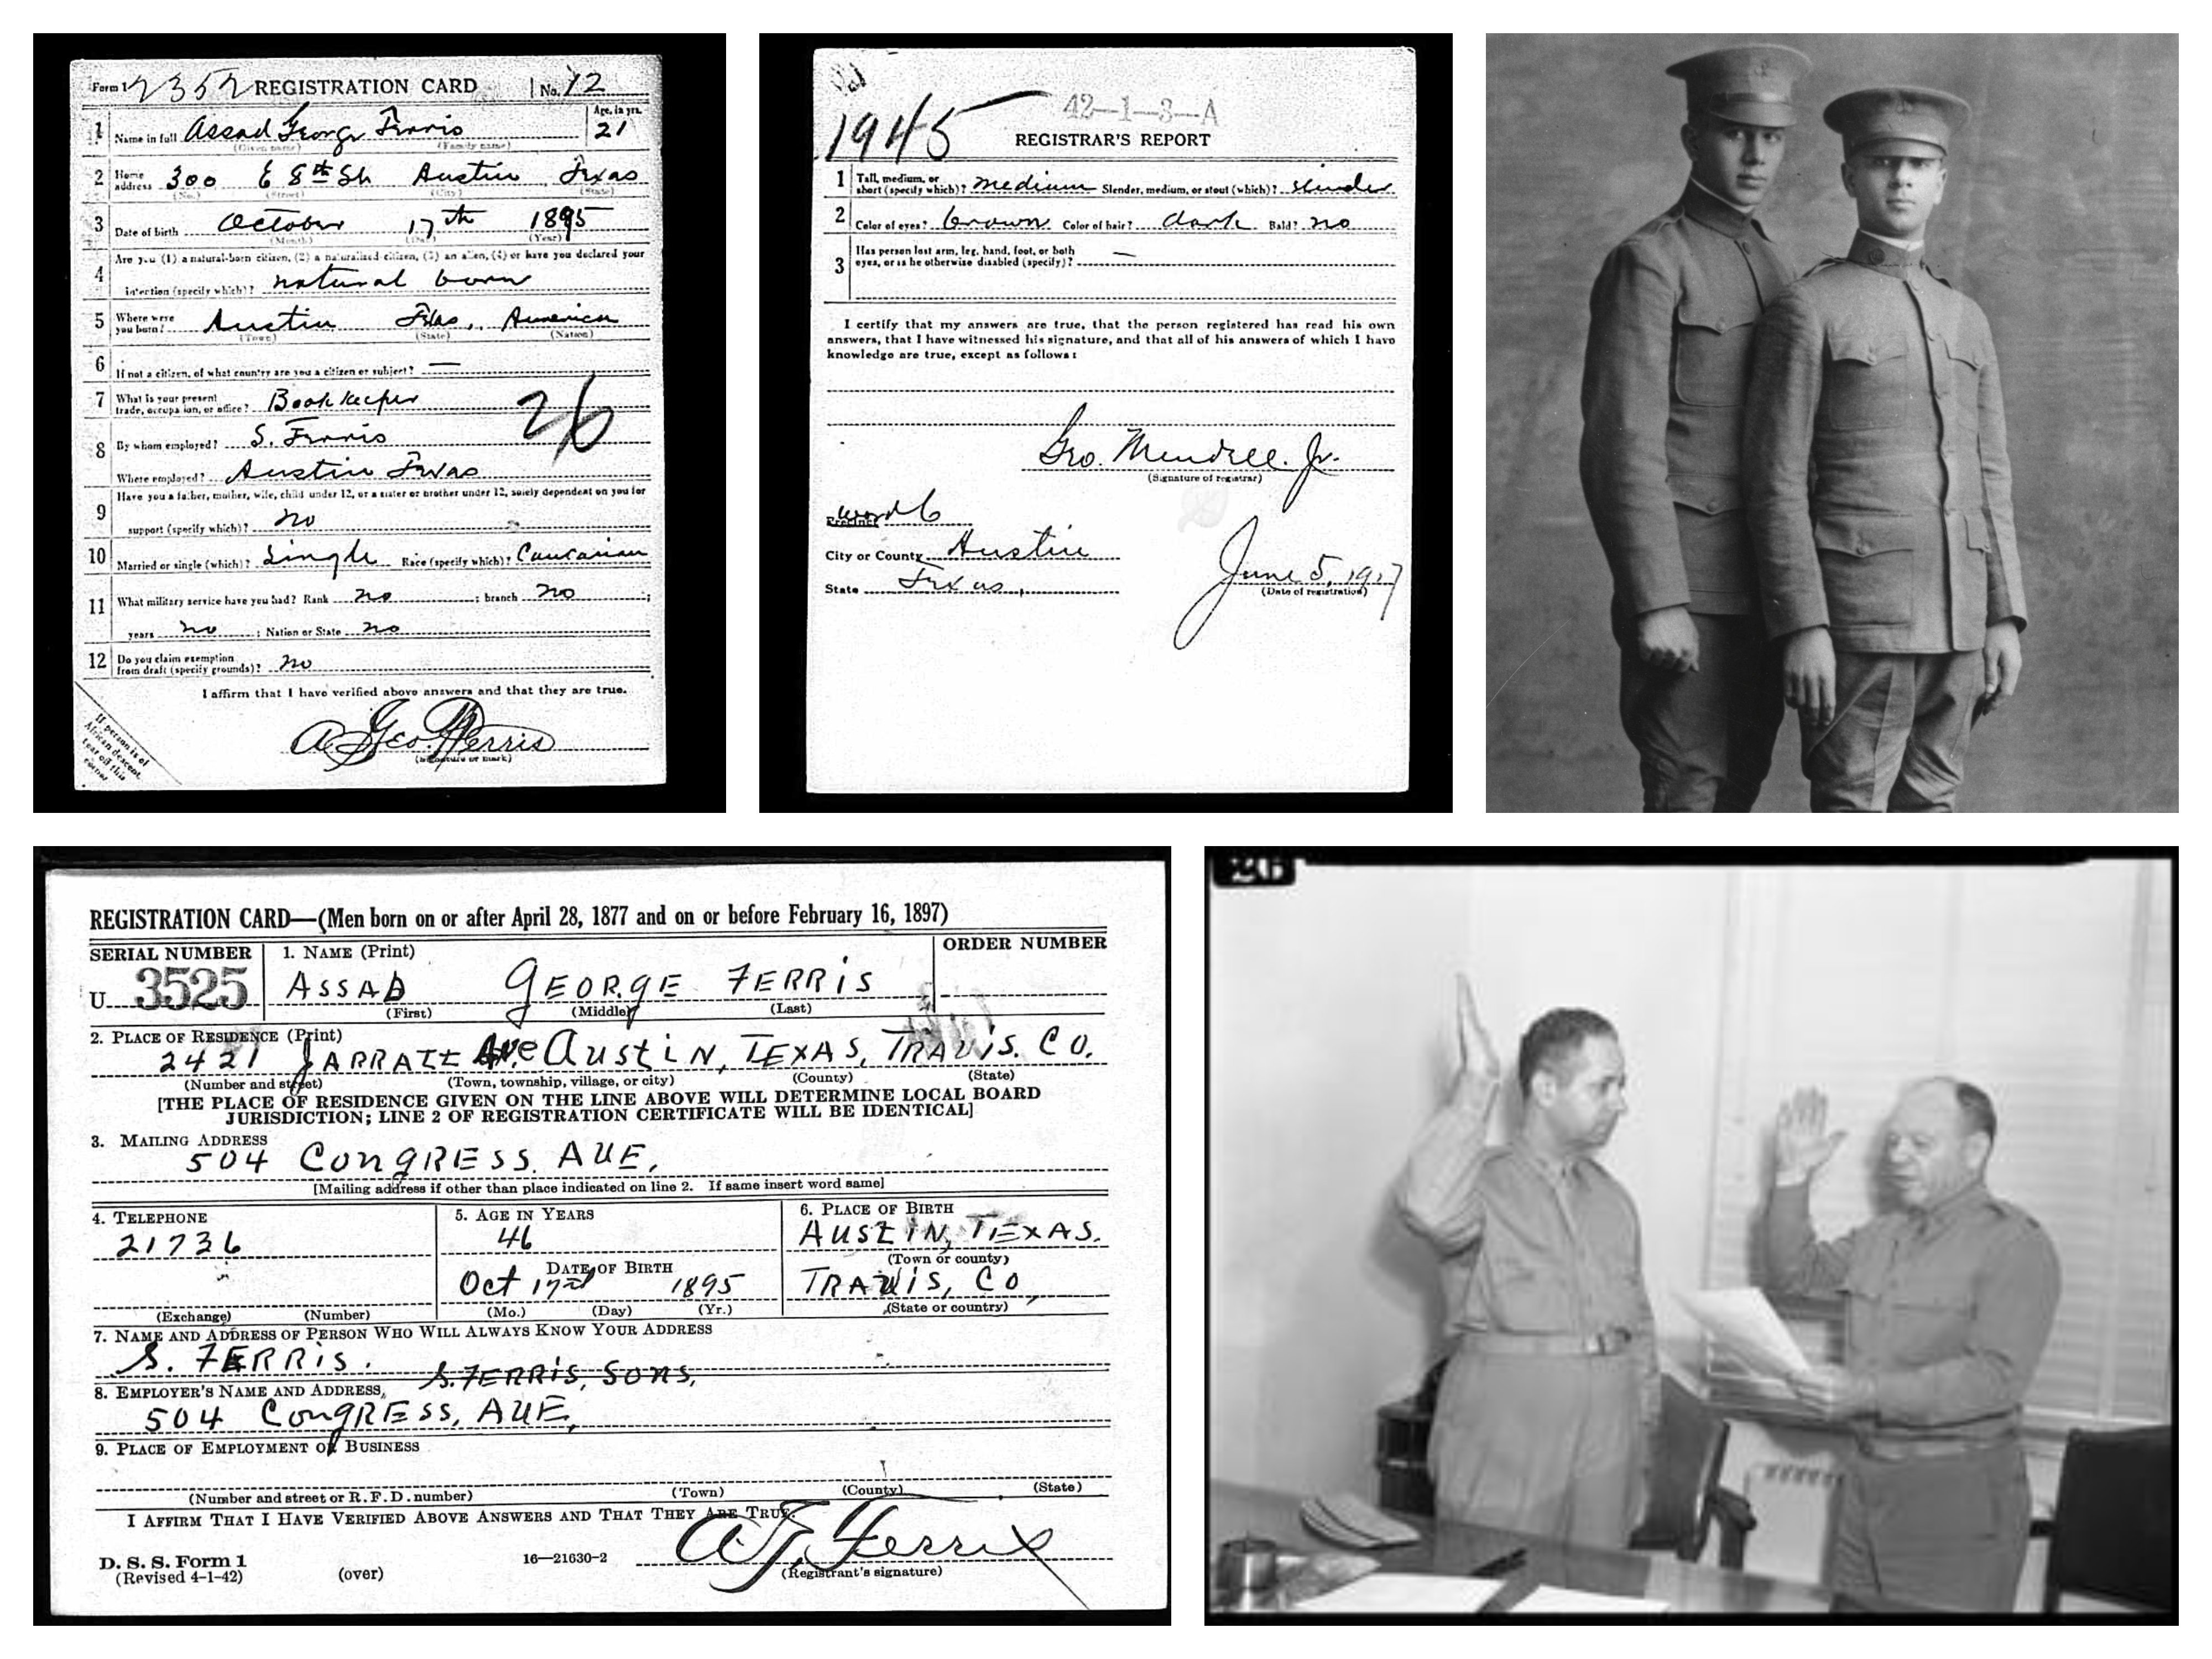 Form 1 2352 REGISTRATION CARD No. 12
1 Name in full Assad George Ferris Age, in yrs. 21
(Given name) (Family name)
2 Home address 300 E 8th St Austin Texas
(No.) (Street) (City) (State)
3 Date of birth October 17th 1895
(Month) (Day) (Year)
4 Are you (1) a natural-born citizen, (2) a naturalized citizen, (3) an alien, (4) or have you declared your
intention (specify which)? natural born
5 Where were you born? Austin Texas, America
(Town) (State) (Nation)
6 If not a citizen, of what country are you a citizen or subject? —
7 What is your present trade, occupation, or office? Book keeper
26
8 By whom employed? S. Ferris
Where employed? Austin Texas
9 Have you a father, mother, wife, child under 12, or a sister or brother under 12, solely dependent on you for
support (specify which)? no
10 Married or single (which)? Single Race (specify which)? Caucasian
11 What military service have you had? Rank no ; branch no ;
years no ; Nation or State no
12 Do you claim exemption from draft (specify grounds)? no
I affirm that I have verified above answers and that they are true.
A Geo. Ferris
(Signature or mark)
If person is of
African descent,
tear off this
corner
1945 42—1—3—A
REGISTRAR'S REPORT
1 Tall, medium, or short (specify which)? medium Slender, medium, or stout (which)? slender
2 Color of eyes? brown Color of hair? dark Bald? no
3 Has person lost arm, leg, hand, foot, or both
eyes, or is he otherwise disabled (specify)? —
I certify that my answers are true, that the person registered has read his own
answers, that I have witnessed his signature, and that all of his answers of which I have
knowledge are true, except as follows:
Geo. Mendell Jr.
(Signature of registrar)
Precinct ward 6
City or County Austin
State Texas
June 5, 1917
(Date of registration)
REGISTRATION CARD—(Men born on or after April 28, 1877 and on or before February 16, 1897)
SERIAL NUMBER 1. NAME (Print) ORDER NUMBER
U 3525 ASSAD GEORGE FERRIS
(First) (Middle) (Last)
2. PLACE OF RESIDENCE (Print)
2421 JARRATT Ave Austin, TEXAS, TRAVIS. CO.
(Number and street) (Town, township, village, or city) (County) (State)
[THE PLACE OF RESIDENCE GIVEN ON THE LINE ABOVE WILL DETERMINE LOCAL BOARD
JURISDICTION; LINE 2 OF REGISTRATION CERTIFICATE WILL BE IDENTICAL]
3. MAILING ADDRESS
504 CongRESS. AUE.
[Mailing address if other than place indicated on line 2. If same insert word same]
4. TELEPHONE 5. AGE IN YEARS 6. PLACE OF BIRTH
21736 46 AUSTIN, TEXAS.
(Town or county)
DATE OF BIRTH
Oct 17 1895 TRAVIS, CO
(Exchange) (Number) (Mo.) (Day) (Yr.) (State or country)
7. NAME AND ADDRESS OF PERSON WHO WILL ALWAYS KNOW YOUR ADDRESS
S. FERRIS.
S. FERRIS, SONS,
8. EMPLOYER'S NAME AND ADDRESS
504 CongRESS, AUE,
9. PLACE OF EMPLOYMENT OR BUSINESS
(Number and street or R. F. D. number) (Town) (County) (State)
I AFFIRM THAT I HAVE VERIFIED ABOVE ANSWERS AND THAT THEY ARE TRUE.
A G. Ferris
D. S. S. Form 1 16—21630-2 (Registrant's signature)
(Revised 4-1-42) (over)
26